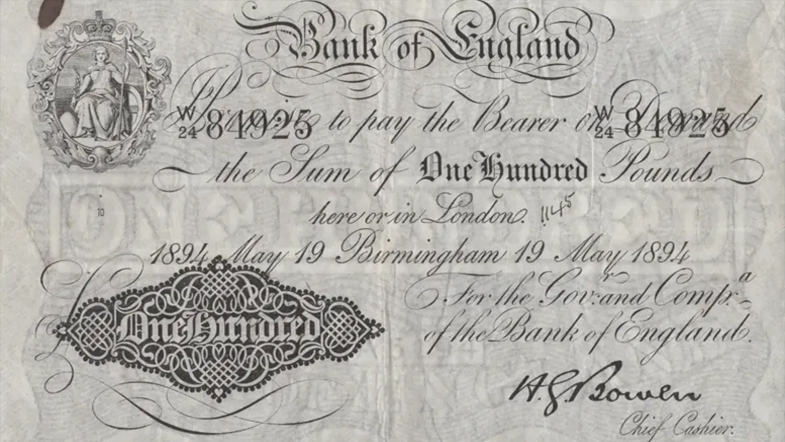 Bank of England
W/24 84925 W/24 84925
I Promise to pay the Bearer on Demand
the Sum of One Hundred Pounds
here or in London. 1145
1894 May 19 Birmingham 19 May 1894
10
For the Gov.r and Comp.a
of the Bank of England.
One Hundred
H. G. Bowen
Chief Cashier.